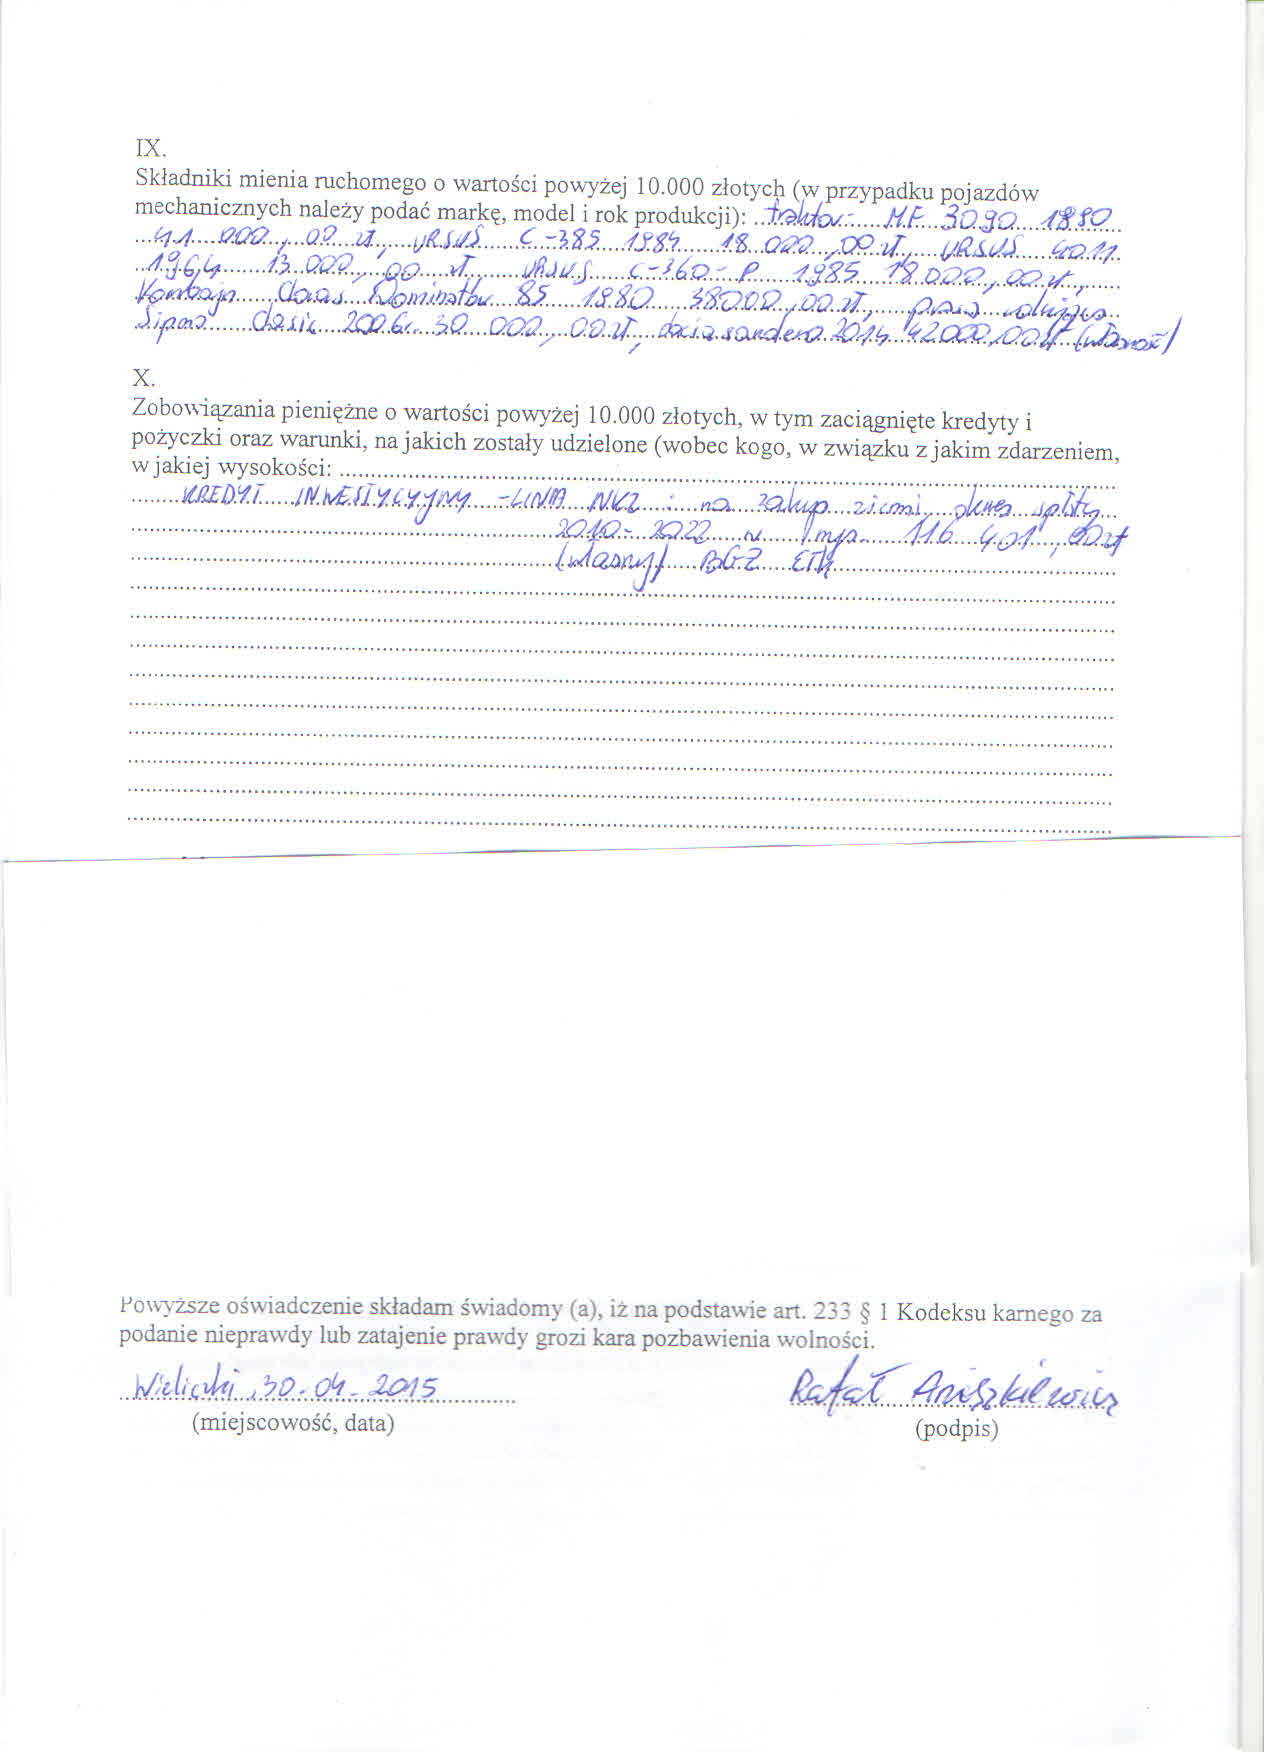 IX.
Składniki mienia ruchomego o wartości powyżej 10.000 złotych (w przypadku pojazdów
mechanicznych należy podać markę, model i rok produkcji): traktor - M.F. 3090 1990
41 000,00 zł, URSUS C-385 1984 18 000,00 zł, URSUS 4011
1964 13 000,00 zł, URSUS C-360-P 1985 18 000,00 zł,
Kombajn Claas Dominator 85 1980 38000,00 zł, prasa
Sipma Clasic 2006r 30 000,00 zł, dacia sandero 2014 42000,00 zł (własność)
X.
Zobowiązania pieniężne o wartości powyżej 10.000 złotych, w tym zaciągnięte kredyty i
pożyczki oraz warunki, na jakich zostały udzielone (wobec kogo, w związku z jakim zdarzeniem,
w jakiej wysokości:
KREDYT INWESTYCYJNY - LINIA NKZ : na zakup ziemi, okres spłaty
2010 - 2022 116 401,00 zł
(własny) BGŻ Ełk
Powyższe oświadczenie składam świadomy (a), iż na podstawie art. 233 § 1 Kodeksu karnego za
podanie nieprawdy lub zatajenie prawdy grozi kara pozbawienia wolności.
Wieliczki, 30-04-2015 Rafał Aniszkiewicz
(miejscowość, data) (podpis)